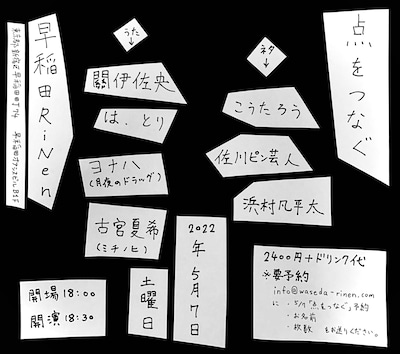 点をつなぐ
ネタ
こうたろう
佐川ピン芸人
浜村凡平太
うた
關伊佐央
は、とり
ヨナハ
(月夜のドラッグ)
古宮夏希
(ミチノヒ)
2022年5月7日
土曜日
早稲田RiNen
開場 18:00
開演 18:30
2400円+ドリンク代
※要予約
info@waseda-rinen.com
に ・5/7「点をつなぐ」予約
・お名前
・枚数 をお送りください。